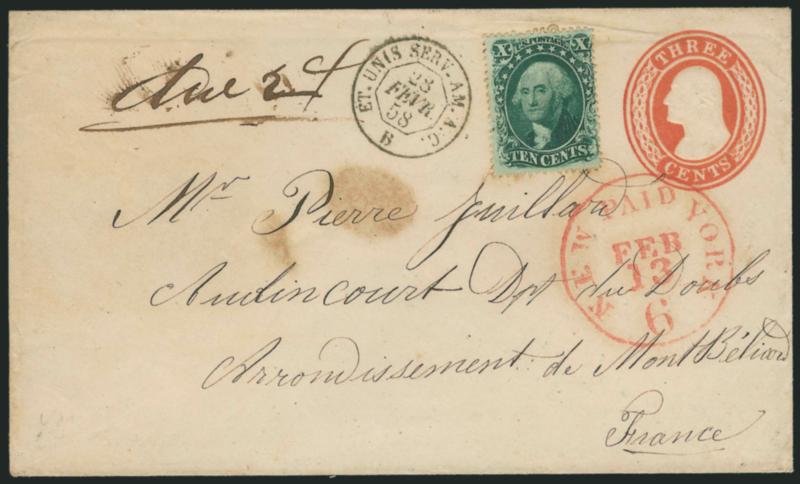 Due 24
ET. UNIS SERV. AM. A. C.
23
FEVR.
58
B
X U.S. POSTAGE X
TEN CENTS
THREE
CENTS
Mr Pierre Juillard
Audincourt Dpt du Doubs
Arrondissement de MontBéliard
France
NEW PAID YORK
FEB
13
6